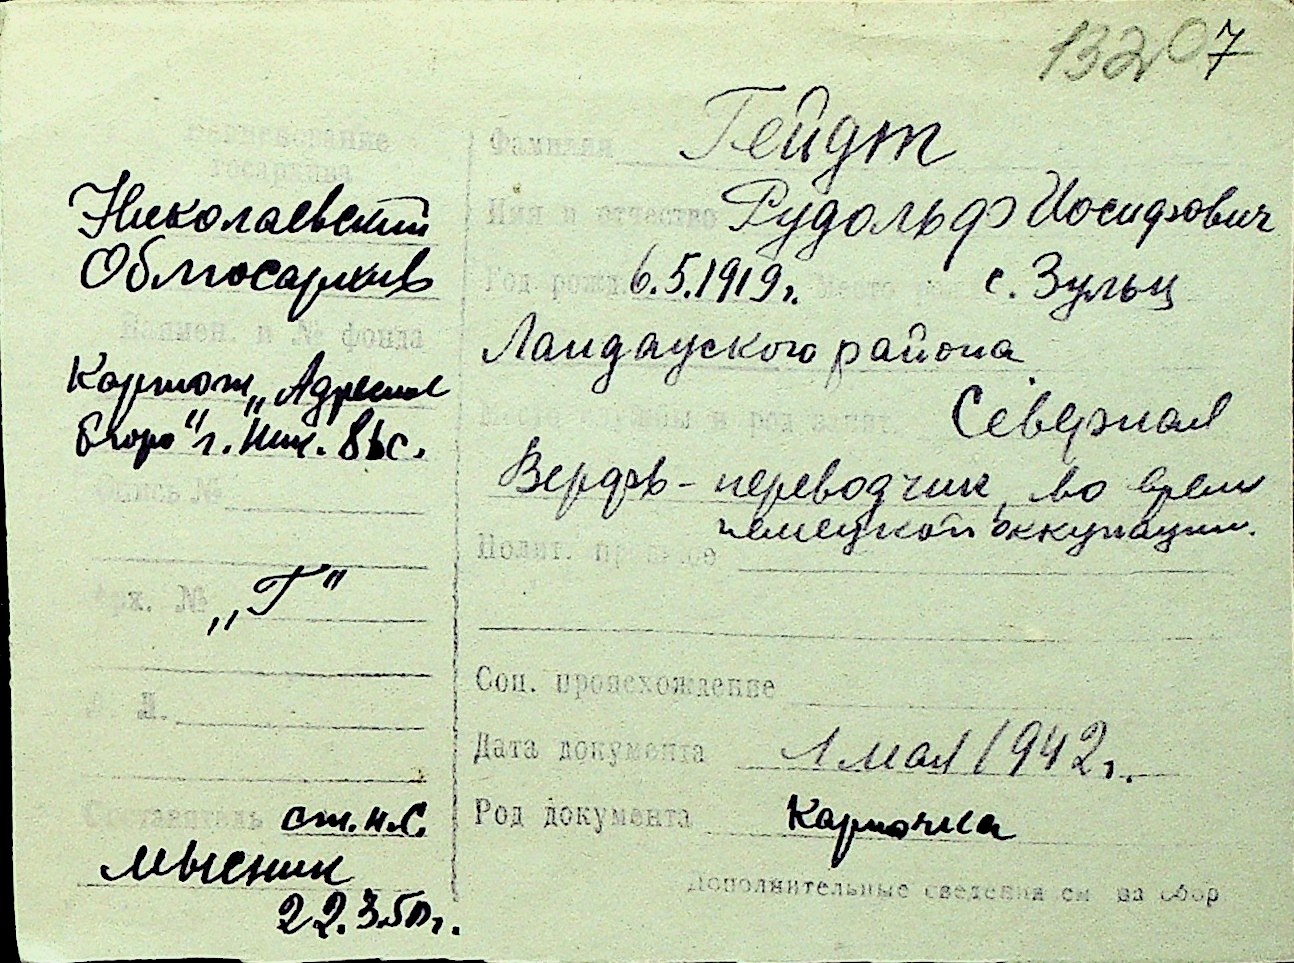 13207
Наименование
госархива
Николаевский
Облгосархив
Наимен. и № фонда
Картот. „Адресное
бюро" г. Ник.
Опись №
Арх. №
„Г"
Л. Л.
Составитель ст. н.с.
Мысник
22.3.50 г.
Фамилия Гейдт
Имя и отчество Рудольф Иосифович
Год рожд. 6.5.1919 г. Место рожд. с. Зульц
Ландауского района
Место службы и род занят. Северная
Верфь - переводчик, во время
немецкой оккупации.
Полит. прошлое
Соц. происхождение
Дата документа 1 мая 1942 г.
Род документа Карточка
Дополнительные сведения см на обор